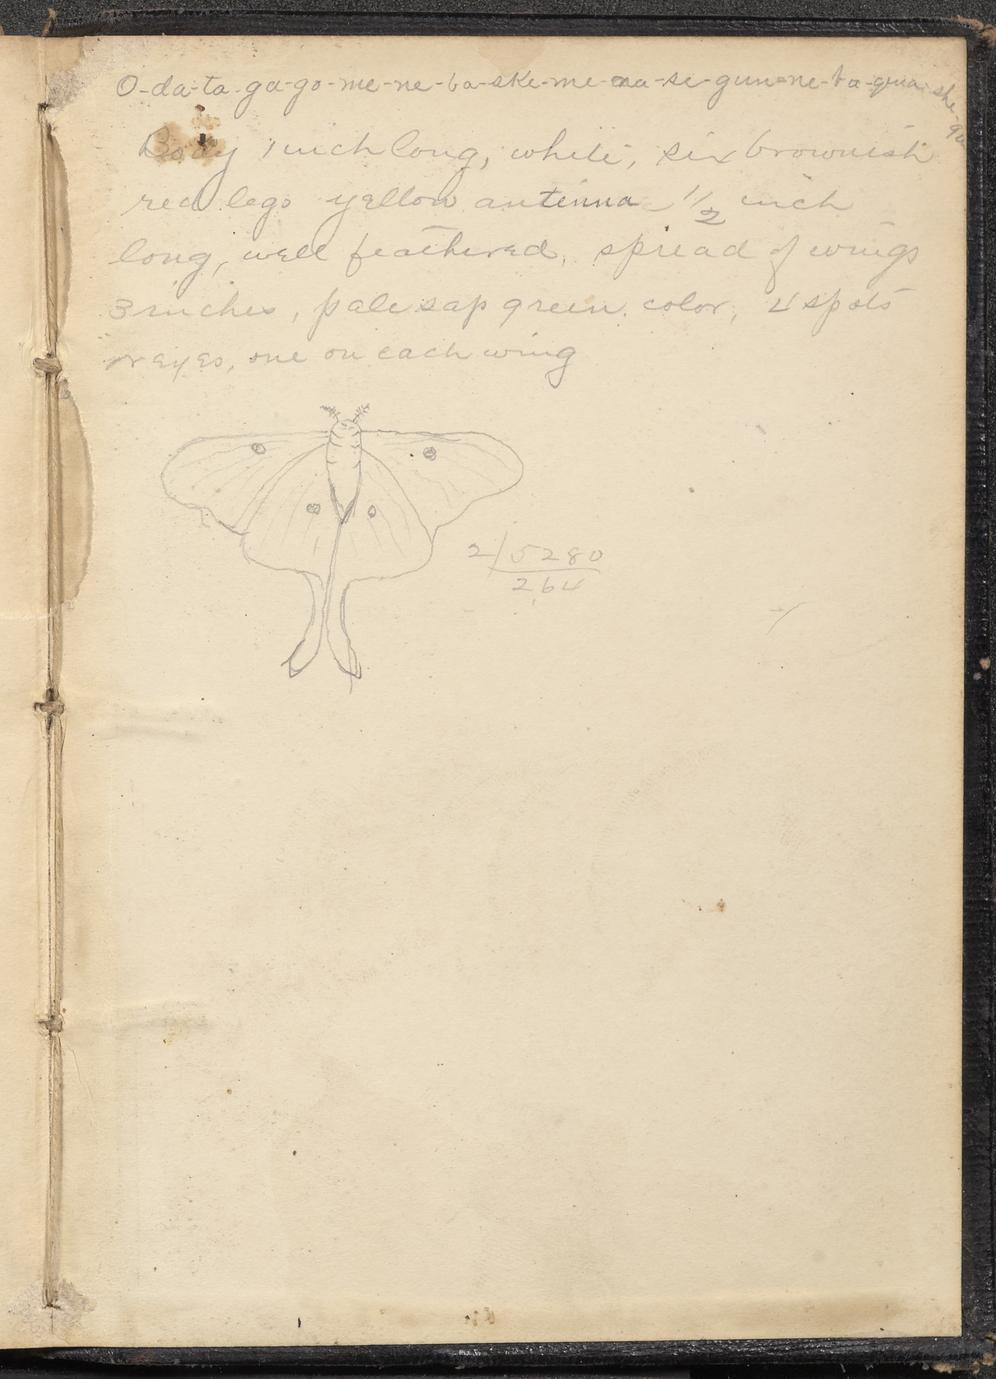 O-da-ta-ga-go-me-ne-ba-ske-me-na-se-gun-ne-ba-qua-she-
Body 1 inch long, white, six brownish
red legs yellow antenna 1/2 inch
long, well feathered, spread of wings
3 inches, pale sap green color, 4 spots
or eyes, one on each wing
2/5280
264